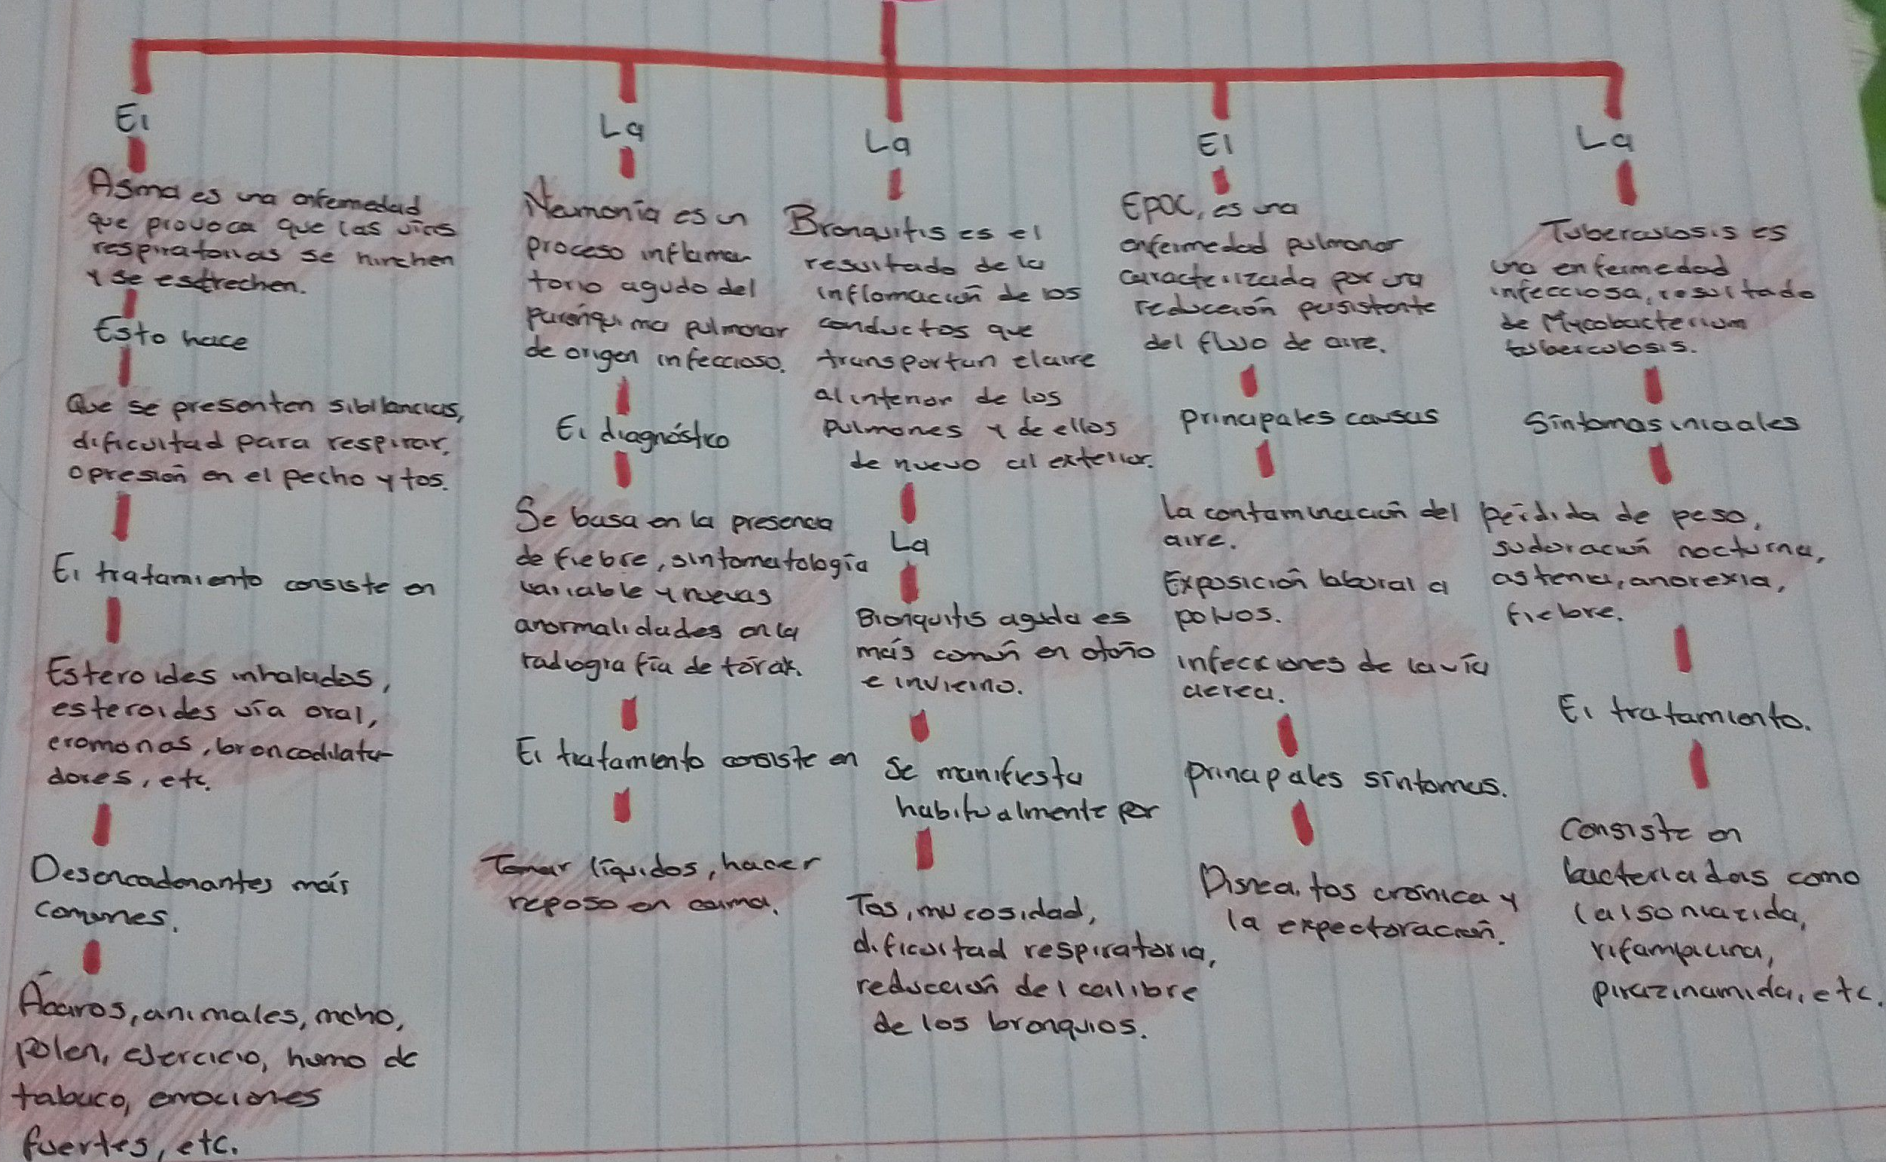 El
Asma es una enfermedad
que provoca que las vias
respiratorias se hinchen
y se estrechen.
Esto hace
Que se presenten sibilancias,
dificultad para respirar,
opresión en el pecho y tos.
El tratamiento consiste en
Esteroides inhalados,
esteroides vía oral,
cromonas, broncodilata-
dores, etc.
Desencadenantes más
comunes.
Ácaros, animales, moho,
polen, ejercicio, humo de
tabaco, emociones
fuertes, etc.
La
Neumonía es un
proceso inflama
torio agudo del
parénquima pulmonar
de origen infeccioso.
El diagnóstico
Se basa en la presencia
de fiebre, sintomatología
variable y nuevas
anormalidades en la
radiografía de tórax.
El tratamiento consiste en
Tomar líquidos, hacer
reposo en cama.
La
Bronquitis es el
resultado de la
inflamación de los
conductos que
transportan el aire
al interior de los
pulmones y de ellos
de nuevo al exterior.
La
Bronquitis aguda es
más común en otoño
e invierno.
Se manifiesta
habitualmente por
Tos, mucosidad,
dificultad respiratoria,
reducción del calibre
de los bronquios.
El
EPOC, es una
enfermedad pulmonar
caracterizada por una
reducción persistente
del flujo de aire.
principales causas
La contaminación del
aire.
Exposición laboral a
polvos.
infecciones de la vía
aerea.
principales síntomas.
Disnea, tos crónica y
la expectoración.
La
Tuberculosis es
una enfermedad
infecciosa, resultado
de Mycobacterium
tuberculosis.
Síntomas iniciales
perdida de peso,
sudoración nocturna,
astenia, anorexia,
fiebre.
El tratamiento.
Consiste en
bactericidas como
la isoniazida,
rifampicina,
pirazinamida, etc.